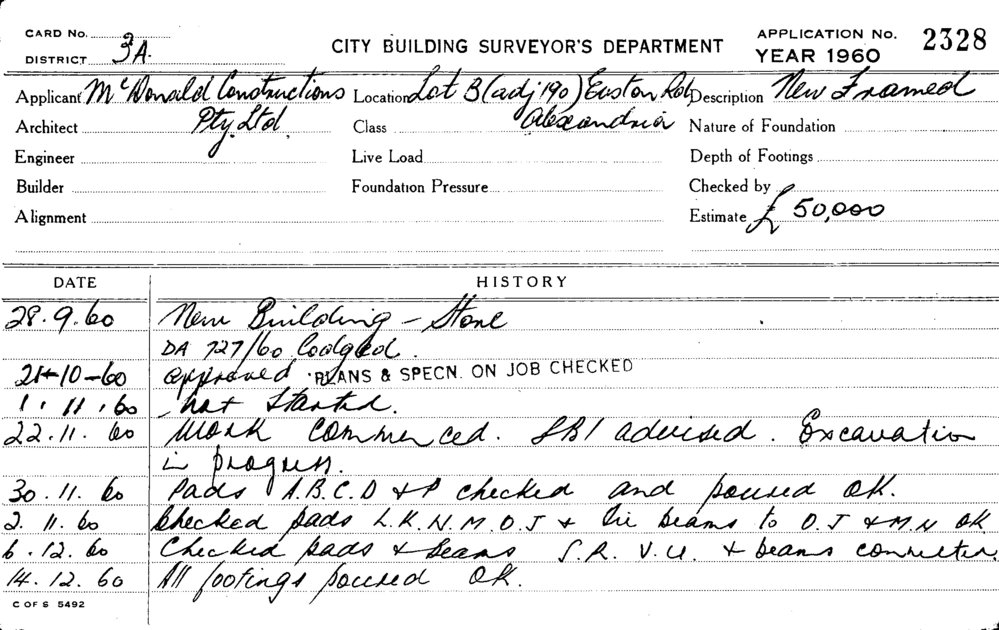 CARD No.
DISTRICT 3A.
CITY BUILDING SURVEYOR'S DEPARTMENT
APPLICATION No. 2328
YEAR 1960
Applicant McDonald Constructions Location Lot B (adj 190) Euston Rd, Description New Framed
Architect Pty. Ltd. Class Alexandria Nature of Foundation
Engineer Live Load Depth of Footings
Builder Foundation Pressure Checked by
Alignment Estimate £ 50,000
DATE HISTORY
28.9.60 New Building - Store
DA 727/60 lodged.
21-10-60 approved PLANS & SPECN. ON JOB CHECKED
1.11.60 not started.
22.11.60 Work commenced. SBI advised. Excavation
in progress.
30.11.60 Pads A.B.C.D & P checked and poured OK.
2.11.60 Checked pads L.K.N.M.O.J & tie beams to O.J & M.N OK
6.12.60 Checked pads & beams S.R. V.U. & beams
14.12.60 All footings poured OK.
C OF S 5492